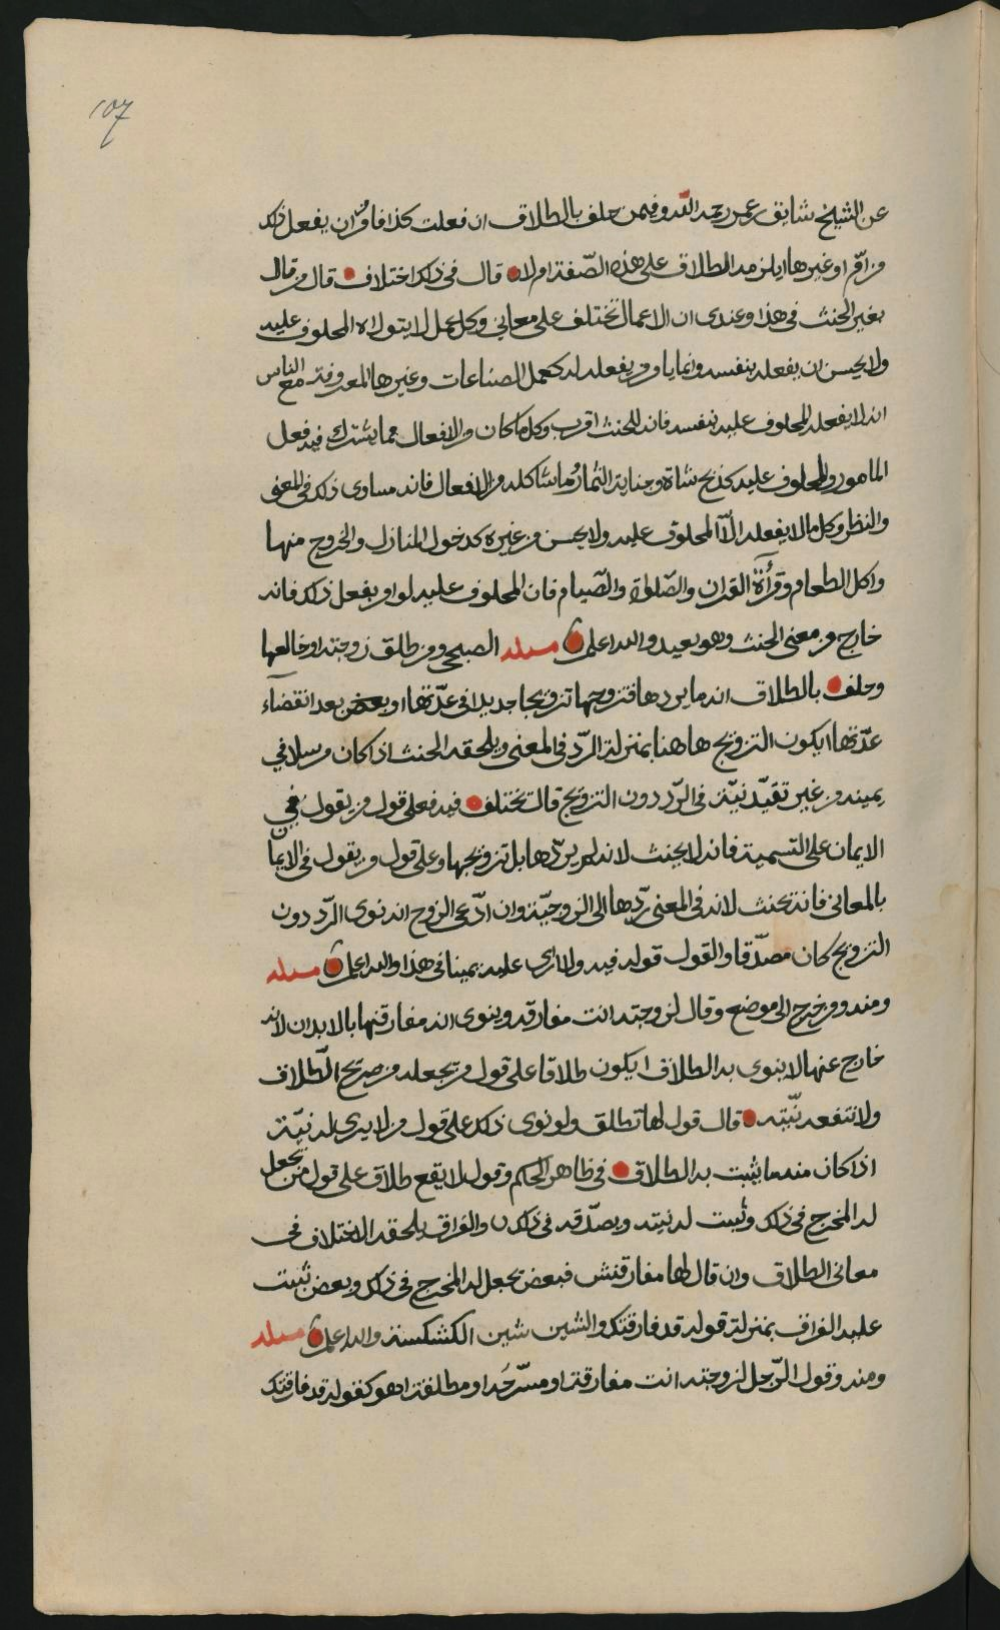 107
عن الشيخ شايق عمر رحمه الله وفيمن حلف بالطلاق ان فعلت كذا فامر من يفعل ذلك
من اقر او غيرها ايلزمه الطلاق على هذه الصّفة ام لا قال في ذلك اختلاف قال من قال
بغير الحنث في هذا وعندي ان الاعمال تختلف على معاني وكل عمل لا يتولاه المحلوف عليه
ولا يحسن ان يفعله بنفسه وانما يامر من يفعله له كعمل الصناعات وغيرها المعروفة مع الناس
انه لا يفعله المحلوف عليه بنفسه فانه للحنث اقرب وكل ما كان من الافعال مما يشترك فيه فعل
المامور والمحلوف عليه كذبح شاة وجناية الثمار وما شاكله من الافعال فانه مساوى ذلك في المعنى
والنظر وكل ما لا يفعله الّا المحلوف عليه ولا يحسن من غيره كدخول المنازل والخروج منها
واكل الطعام وقرأة القران والصّلوة والصّيام فان المحلوف عليه لو امر بفعل ذلك فانه
خارج من معنى الحنث وهو بعيد والله اعلم مسئلة الصبحي ومن طلق زوجته او خالعها
وحلف بالطلاق انه ما يردها فتزوجها تزويجا جديدا في عدّتها او بعض بعد انقضاء
عدّتها ايكون التزويج هاهنا بمنزلة الردّ في المعنى ويلحقه الحنث اذا كان مرسلا في
يمينه من غير تقيّد نيّة في الرّد دون التزويج قال تختلف فيه فعلى قول من يقول في
الايمان على التسمية فانه لا يحنث لانه لم يردّها بل تزويجها وعلى قول من يقول في الايمان
بالمعاني فانه يحنث لانه في المعنى ردّها الى الزوجيّة وان ادّعى الزوج انه نوى الرّد دون
التزويج كان مصدّقا والقول قوله فيه ولا ارى عليه يمينا في هذا والله اعلم مسئلة
ومنه ومن خرج الى موضع وقال لزوجته انت مفارقه وينوى انه مفارقتها بالابدان لانه
خارج عنها لا ينوى به الطلاق ايكون طلاقا على قول من يجعله من صريح الطّلاق
ولا تنفعه نيّته قال قول لها تطلق ولو نوى ذلك على قول من لا يرى له نيّة
اذا كان منه ما يثبت به الطلاق في ظاهر الحكم وقول لا يقع طلاق على قول من يجعل
له المخرج في ذلك وثبت له نيته ويصدّقه في ذلك والفراق يلحقه الاختلاف في
معاني الطلاق وان قال لها مفارقنش فبعض يجعل له المخرج في ذلك وبعض ثبت
عليه الفراق بمنزلة قوله قد فارقتك والشين شين الكشكسة والله اعلم مسئلة
ومنه وقول الرّجل لزوجته انت مفارقة او مسرّحَه او مطلقة اهو كقوله قد فارقتك